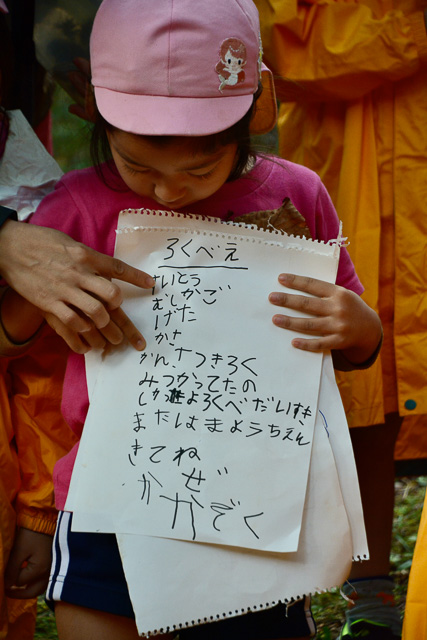 ろくべえ
けいとう
むしかご
げた
かさ
かんさつきろく
みつかってたの
しか進よろくべだいすき
まだはまようちえん
きてね
かぜ
かぞく